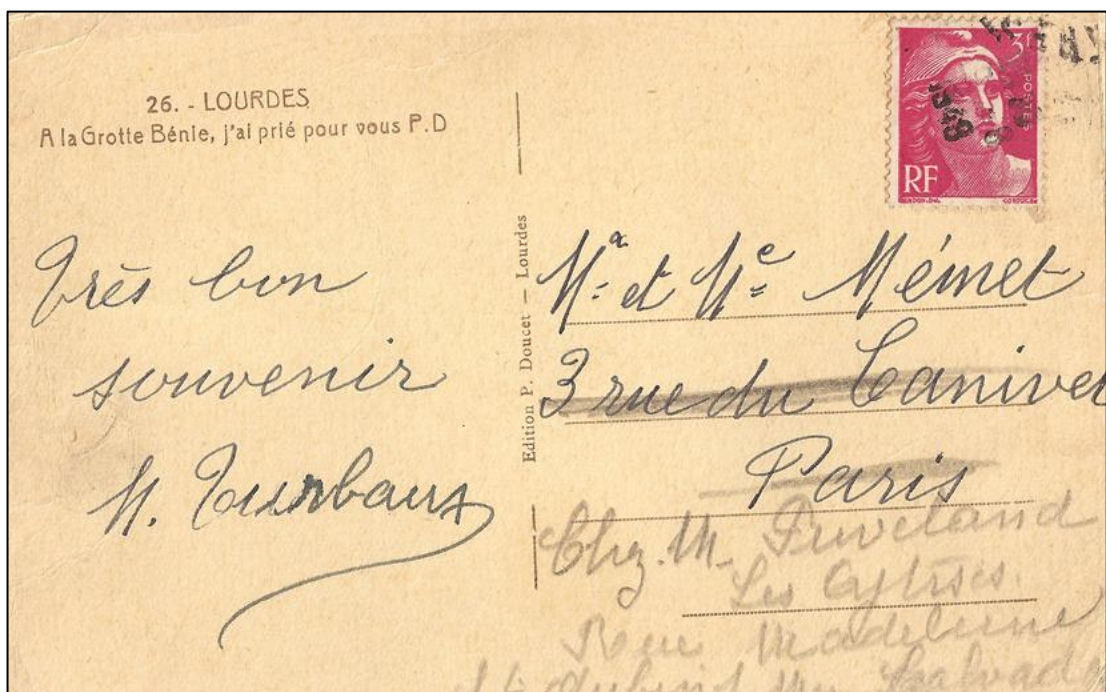 26. - LOURDES
A la Grotte Bénie, j'ai prié pour vous P.D
Très bon
souvenir
Edition P. Doucet — Lourdes
3
POSTES
1948
RF
Mr et Me Mémet
3 rue du Canivet
Paris
Chez M.
Les
Rue Madeleine